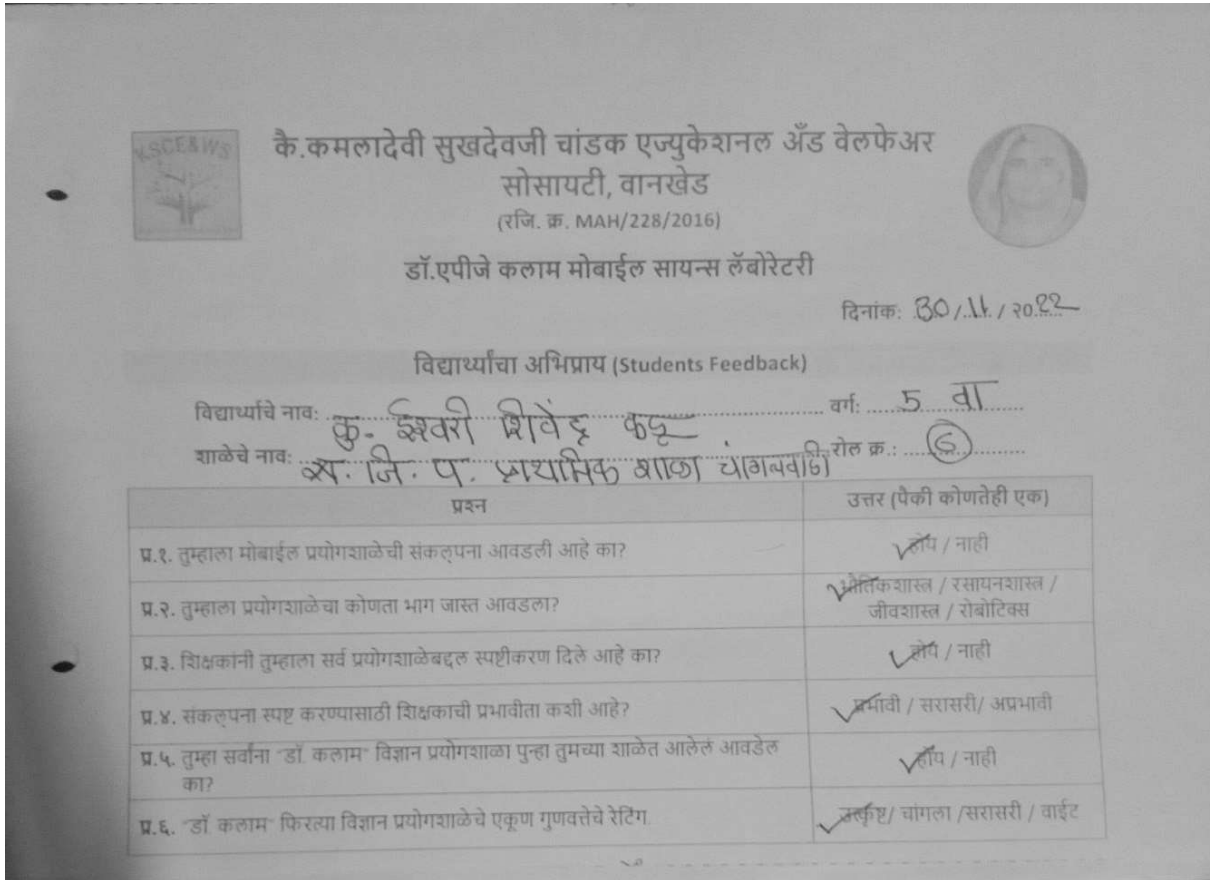 KSCE&WS
कै.कमलादेवी सुखदेवजी चांडक एज्युकेशनल अँड वेलफेअर
सोसायटी, वानखेड
(रजि. क्र. MAH/228/2016)
डॉ.एपीजे कलाम मोबाईल सायन्स लॅबोरेटरी
दिनांक: 30/11/२०22
विद्यार्थ्यांचा अभिप्राय (Students Feedback)
विद्यार्थ्याचे नाव: कु. ईश्वरी शिवेंद्र कडू वर्ग: 5 वा
शाळेचे नाव: जि. प. प्राथमिक शाळा चांगलवाडी रोल क्र.: 6
प्रश्न उत्तर (पैकी कोणतेही एक)
प्र.१. तुम्हाला मोबाईल प्रयोगशाळेची संकल्पना आवडली आहे का? होय / नाही
प्र.२. तुम्हाला प्रयोगशाळेचा कोणता भाग जास्त आवडला? भौतिकशास्त्र / रसायनशास्त्र /
जीवशास्त्र / रोबोटिक्स
प्र.३. शिक्षकांनी तुम्हाला सर्व प्रयोगशाळेबद्दल स्पष्टीकरण दिले आहे का? होय / नाही
प्र.४. संकल्पना स्पष्ट करण्यासाठी शिक्षकाची प्रभावीता कशी आहे? प्रभावी / सरासरी/ अप्रभावी
प्र.५. तुम्हा सर्वांना "डॉ. कलाम" विज्ञान प्रयोगशाळा पुन्हा तुमच्या शाळेत आलेलं आवडेल
का? होय / नाही
प्र.६. "डॉ. कलाम" फिरत्या विज्ञान प्रयोगशाळेचे एकूण गुणवत्तेचे रेटिंग. उत्कृष्ट/ चांगला /सरासरी / वाईट